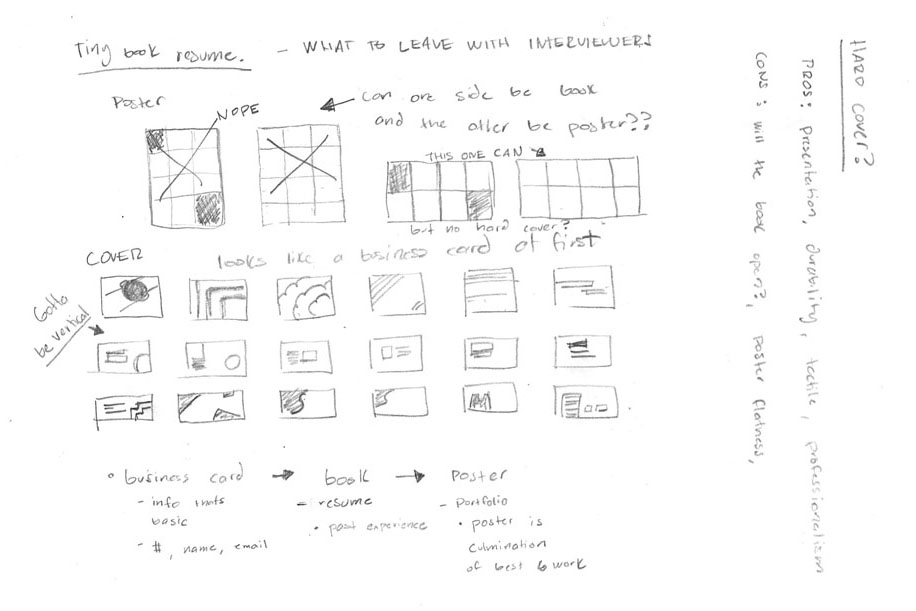 Tiny book resume. - WHAT TO LEAVE WITH INTERVIEWERS
Poster
NOPE
can one side be book
and the other be poster??
THIS ONE CAN
but no hard cover?
COVER
looks like a business card at first
Gotta
be vertical
• business card → book → POSTER
- info thats
basic
- #, name, email
- resume
• past experience
- Portfolio
• poster is
culmination
of best 6 work
HARD COVER?
PROS: Presentation, durability, tactile, professionalism
CONS: will the book open?, poster flatness,